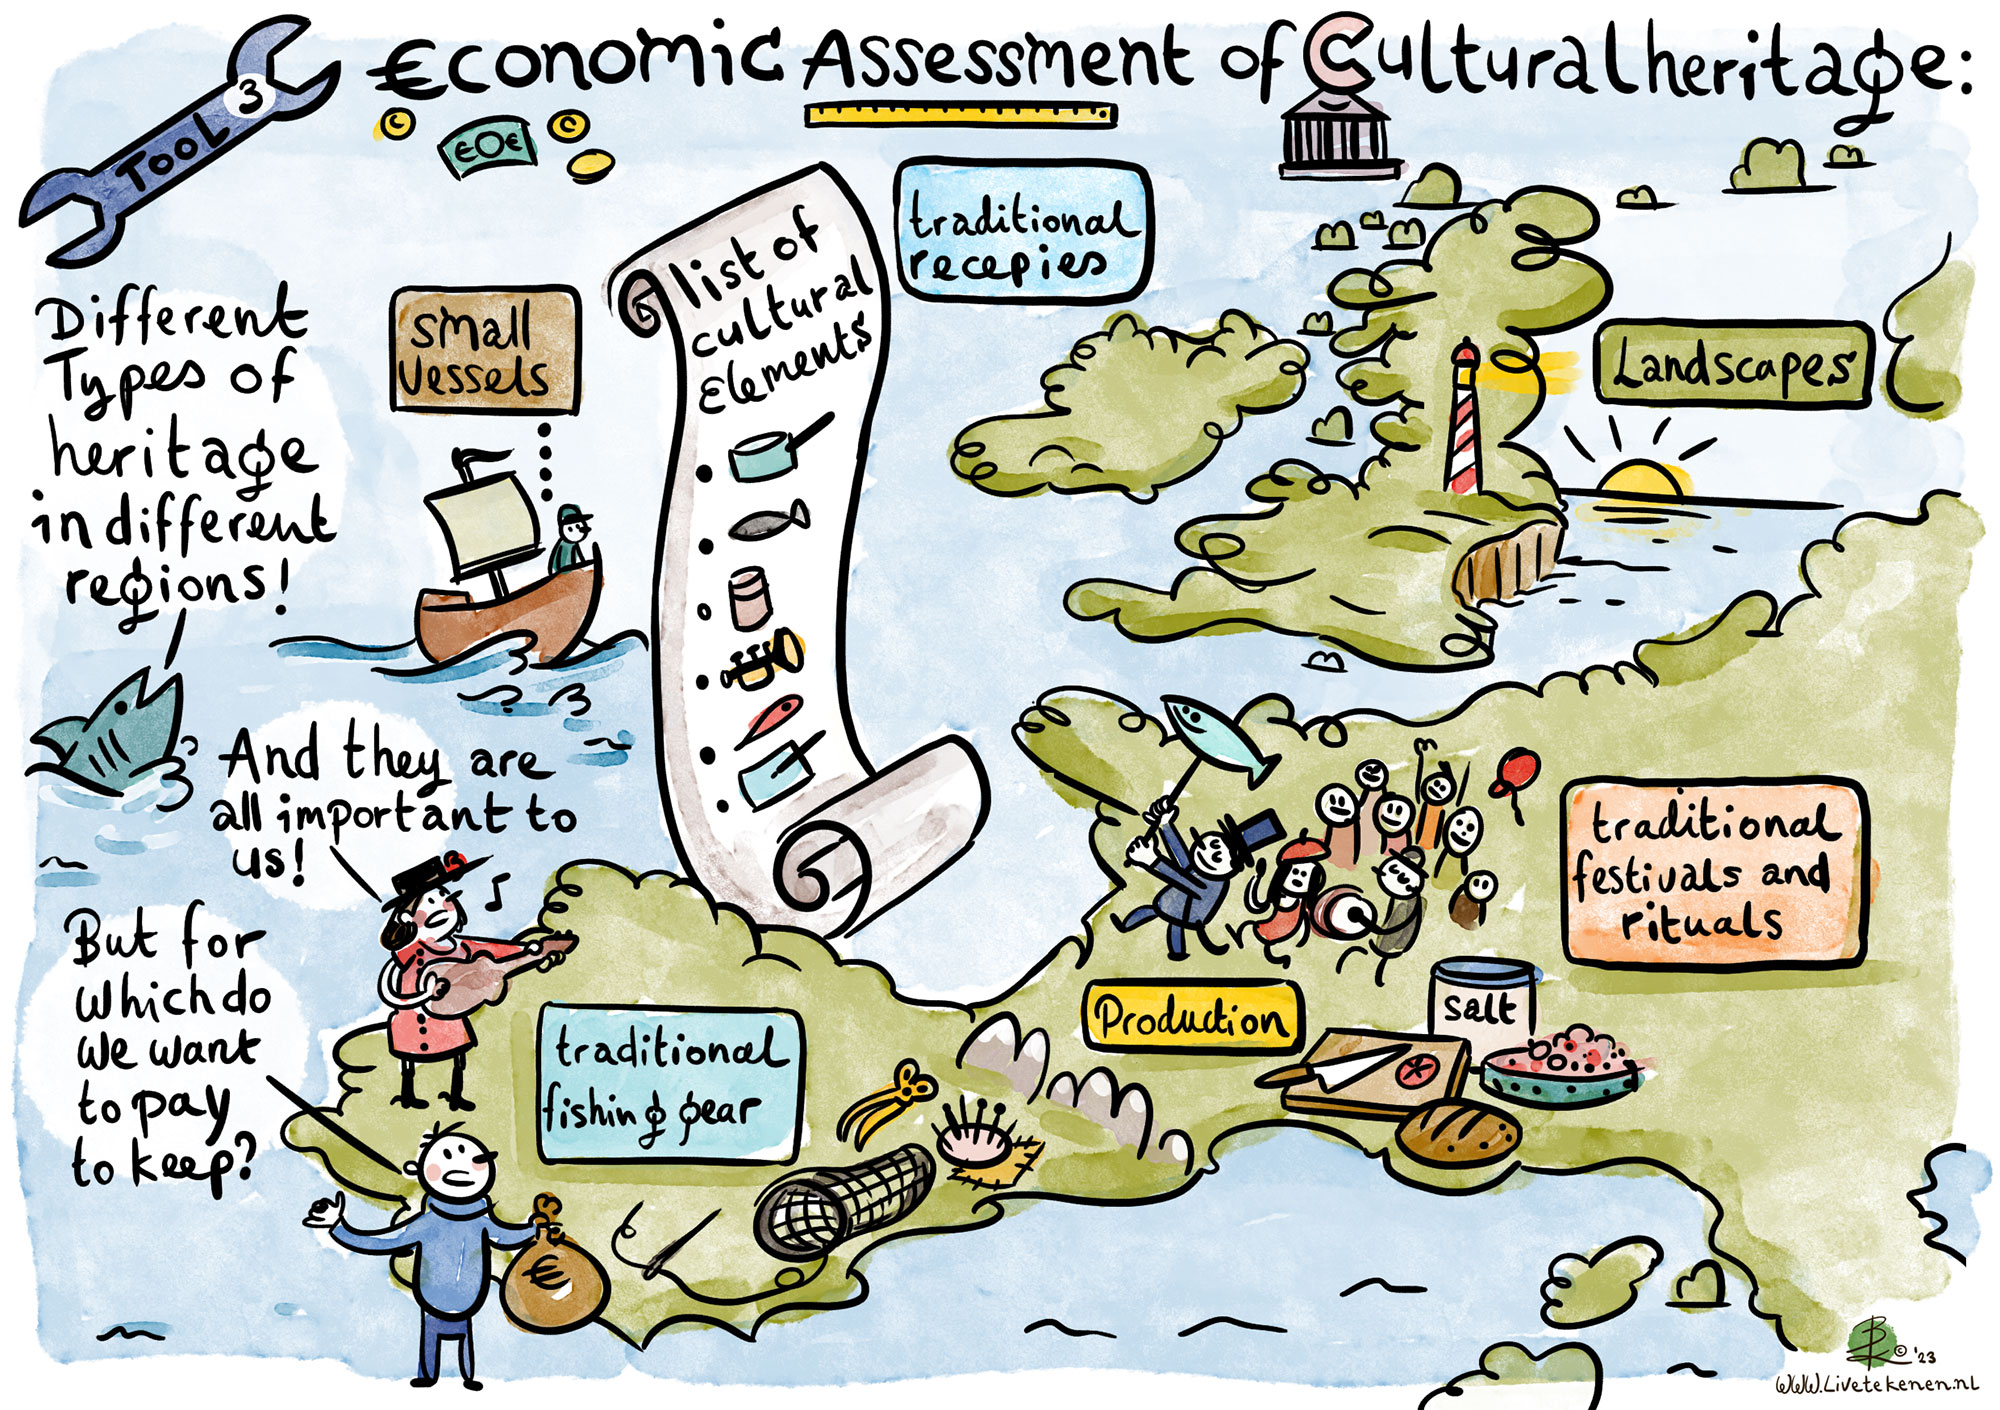 TOOL 3
€conomic Assessment of Cultural heritage:
€O€
Different
Types of
heritage
in different
regions!
small
vessels
list of
cultural
Elements
traditional
recepies
Landscapes
And they are
all important to
us!
But for
which do
we want
to pay
to keep?
€
traditional
fishing gear
Production
salt
traditional
festivals and
rituals
© '23
www.Livetekenen.nl